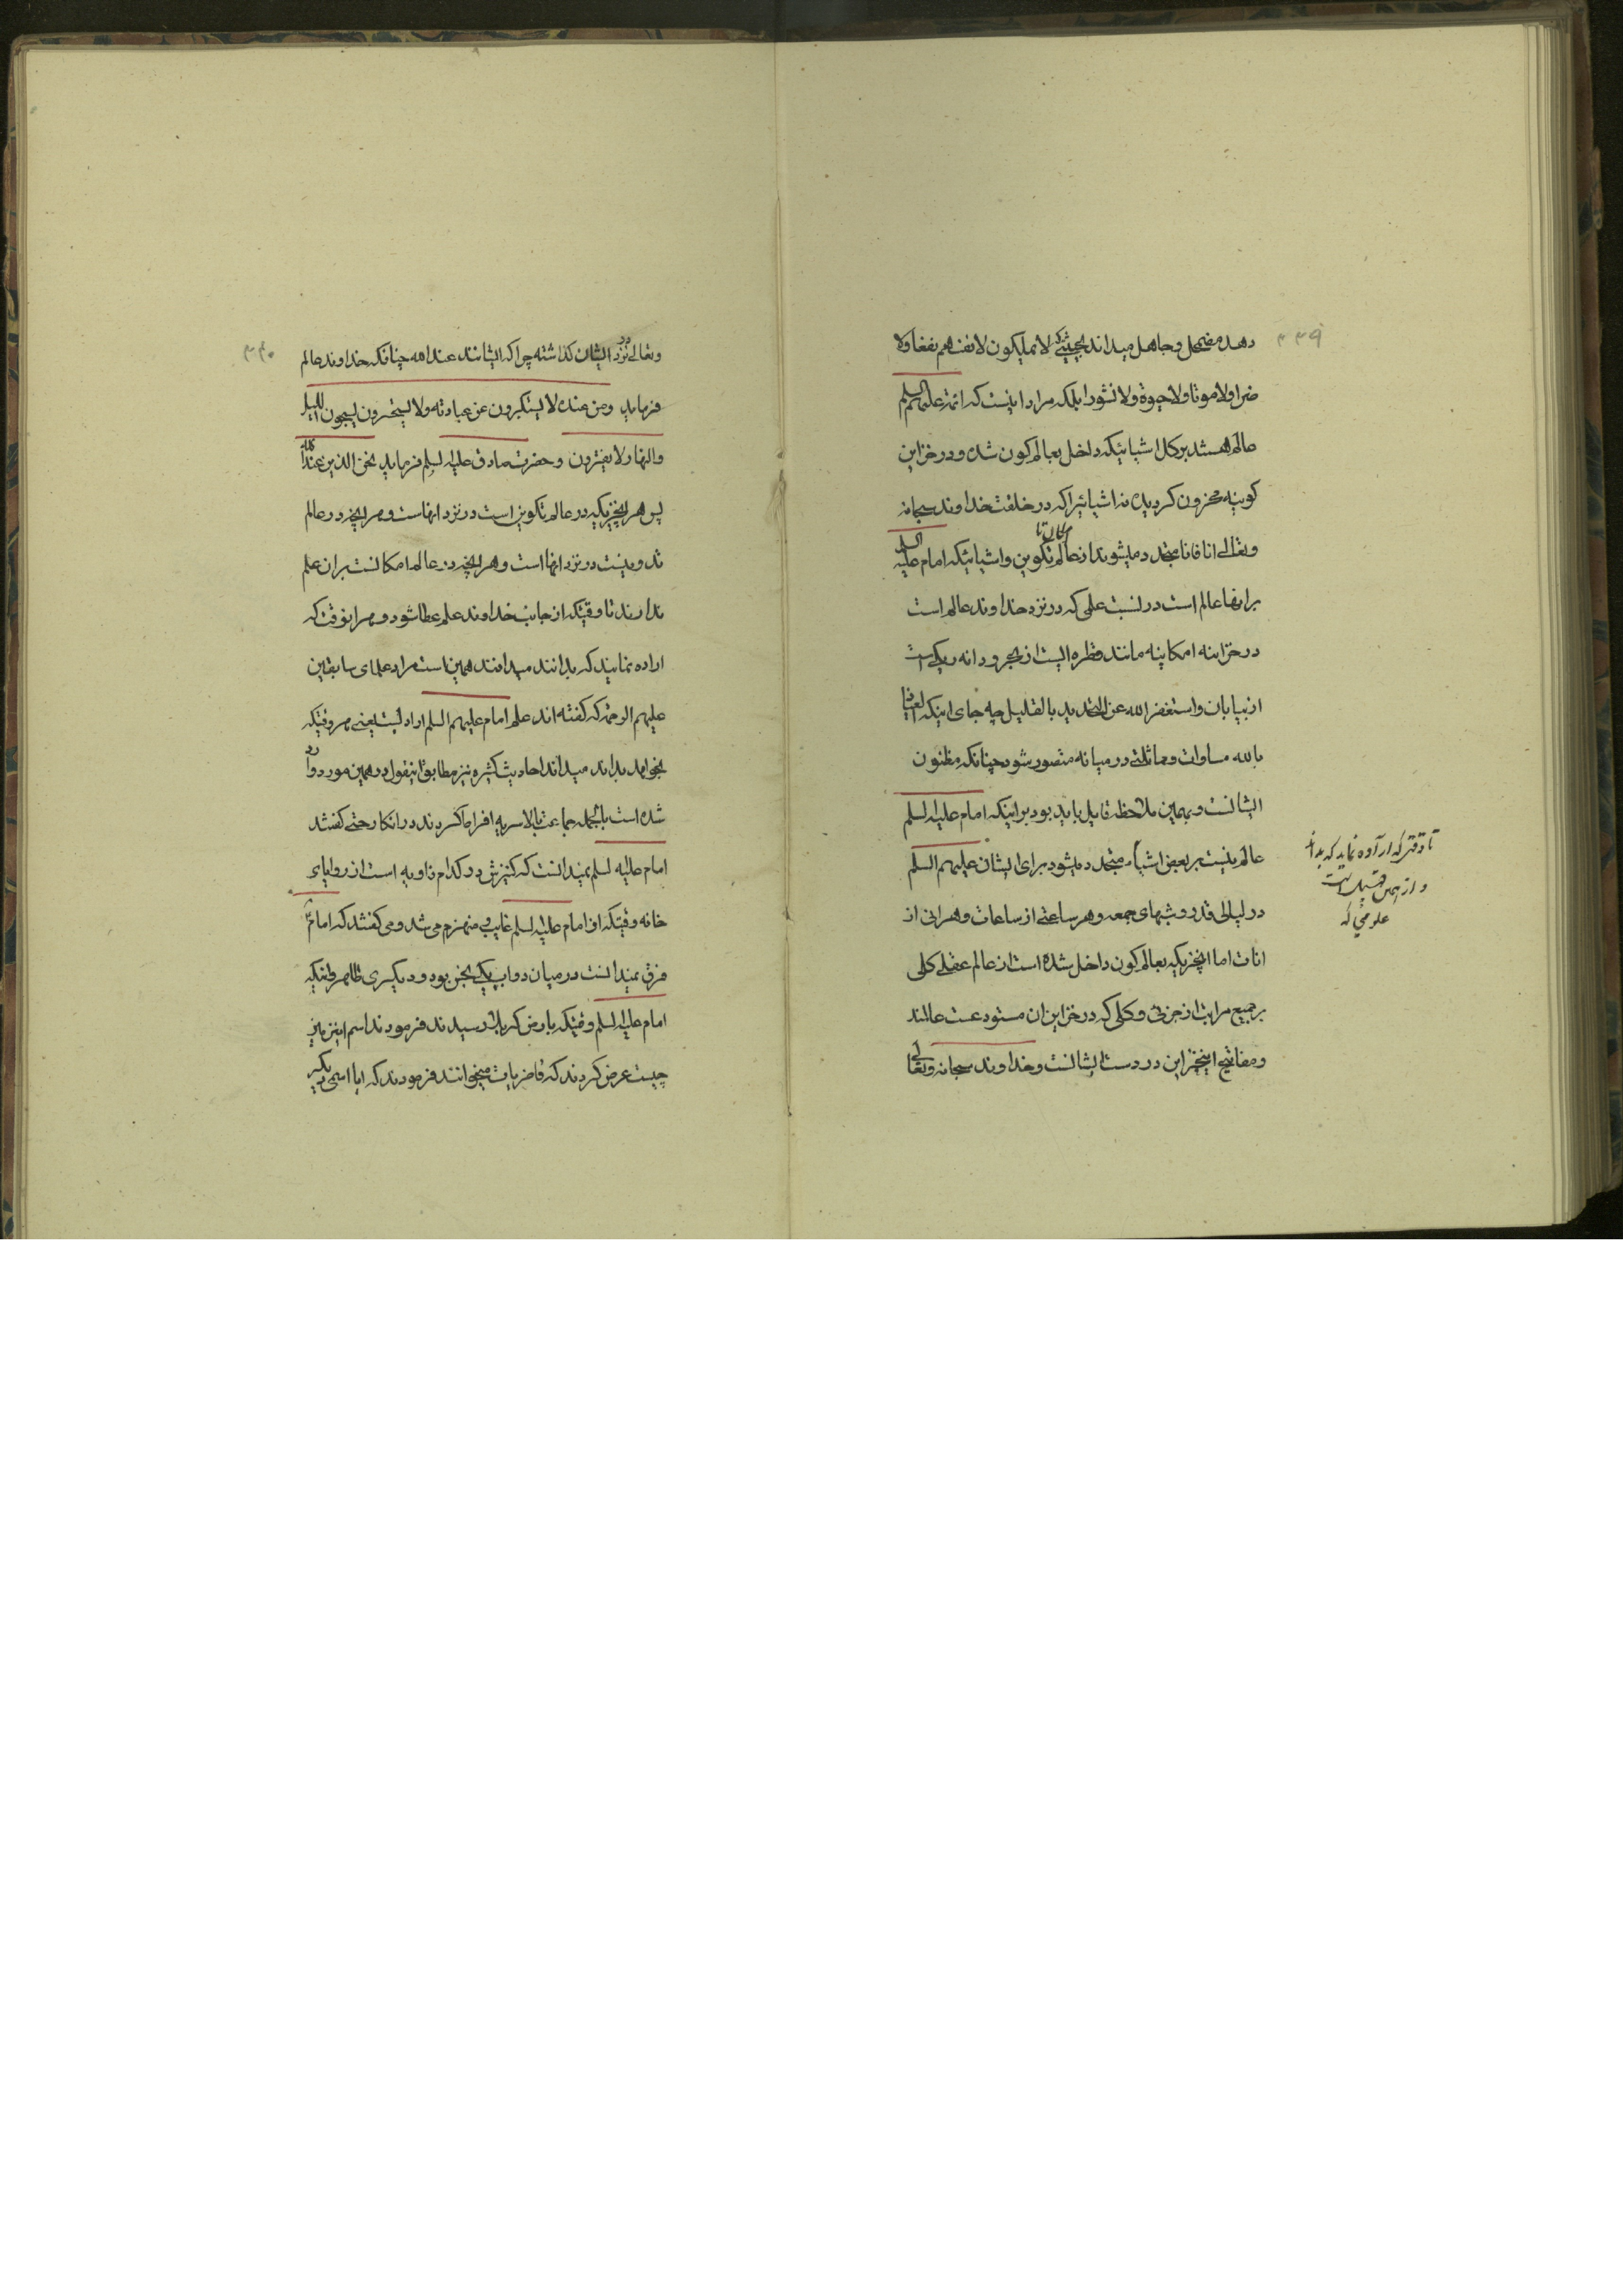 ۳۳۹
دهد مضمحل و جاهل میداند بحیثیتی که لا یملکون لانفسهم نفعا ولا
ضرا ولا موتا ولا حیوة ولا نشورا بلکه مراد اینست که ائمة علیهم السلم
عالم هستند بر کل اشیائیکه داخل بعالم کون شده و در خزاین
کونیه مخزون کردیده نه اشیائیرا که در خلقت خداوند سبحانه
وتعالی انا فانا متجدد میشوند از عالم امکان تا تکوین و اشیائیکه امام علیه السلم
برانها عالم است در نسبت علمی که در نزد خداوند عالم است
در خزاینه امکانیه مانند قطره ایست از بحر و دانه ریکی است
از بیابان و استغفر الله عن التحدید بالقلیل چه جای اینکه العیاذ
بالله مساوات و مماثلتی در میانه متصور شود چنانکه مظنون
ایشانست و بهمین ملاحظه قایل باید بود بر اینکه امام علیه السلم
عالم نیست بر بعض اشیاء متجدد میشود برای ایشان علیهم السلم
در لیالی قدر و شبهای جمعه و هر ساعتی از ساعات و هر انی از
انات اما انچیزیکه بعالم کون داخل شده است از عالم عقل کلی
بر جمیع مراتب از جزئی و کلی که در خزاین ان مستودعست عالمند
و مفاتیح اینخزاین در دست ایشانست و خداوند سبحانه وتعالی
تا وقتی که اراده نماید که بداند
و از همین قبیل است
علومی که
۳۴۰
وتعالی در نزد ایشان کذاشته چرا که ایشانند عند الله چنانکه خداوند عالم
فرماید ومن عنده لا یستکبرون عن عبادته ولا یستحسرون یسبحون اللیل
والنهار لا یفترون و حضرت صادق علیه السلم فرماید نحن الذین عند الله
پس هر انچیزیکه در عالم تکوین است در نزد انهاست و هر انچه در عالم
تدوینست در نزد انها است و هر انچه در عالم امکانست بران علم
ندارند تا وقتیکه از جانب خداوند علم عطا شود و هر انوقت که
اراده نمایند که بدانند میدانند همین است مراد علمای سابقین
علیهم الرحمة که کفته اند علم امام علیهم السلم ارادیست یعنی هر وقتیکه
بخواهد بداند میداند احادیث کثیره نیز مطابق اینقول در همین مورد وارد
شده است بالجمله جماعت بالاسریه افراط کردند در انکار حتی کفتند
امام علیه السلم نمیدانست که کنیزش در کدام زاویه است از روایای
خانه وقتیکه از امام علیه السلم غایب منهزم می شد و می کفتند که امام ع
فرق نمیدانست در میان دو اب یکی نجس بود و دیکری طاهر وقتیکه
امام علیه السلم وقتیکه بارض کربلا رسیدند فرمودند اسم این زمین
چیست عرض کردند که غاضریات میخوانند فرمودند که ایا اسمی دیکر